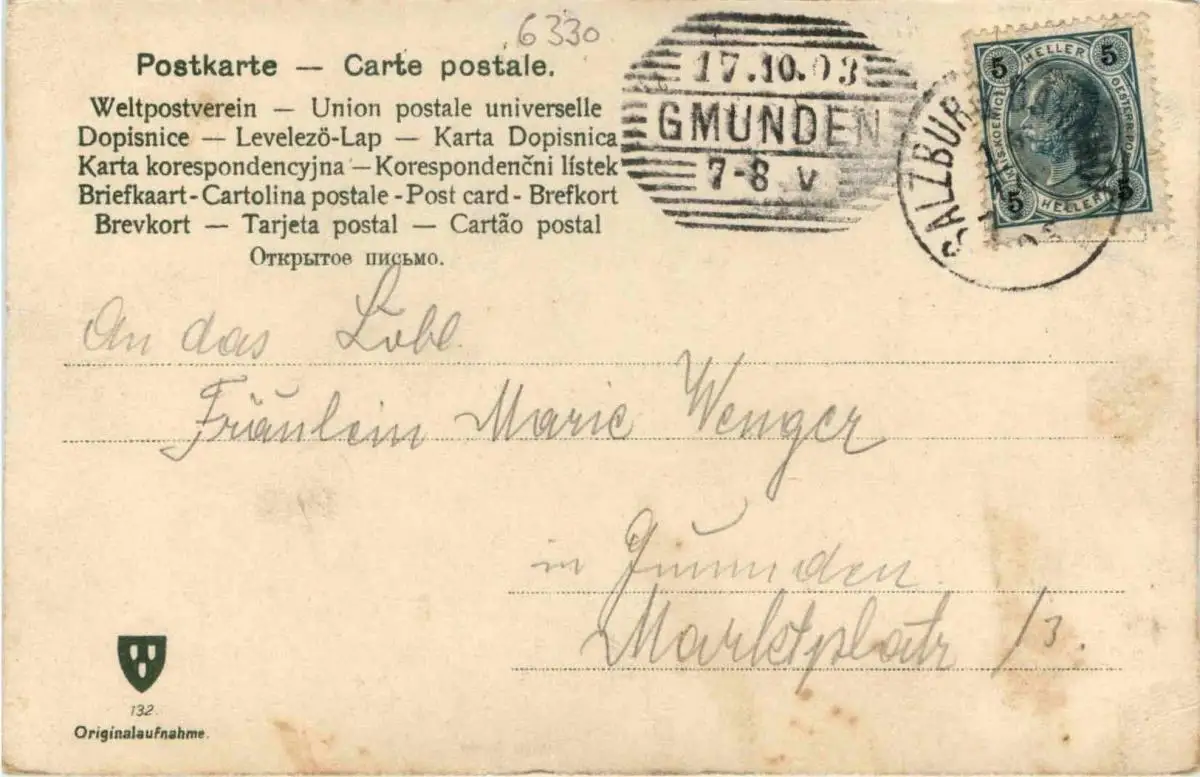 6330
Postkarte — Carte postale.
Weltpostverein — Union postale universelle
Dopisnice — Levelezö-Lap — Karta Dopisnica
Karta korespondencyjna — Korespondenčni lístek
Briefkaart - Cartolina postale - Post card - Brefkort
Brevkort — Tarjeta postal — Cartão postal
Открытое письмо.
17.10.03
GMUNDEN
7-8 V
SALZBURG
5 HELLER 5
5 HELLER 5
An das Löbl.
Fräulein Marie Wenger
in Gmunden
Marktplatz /3.
132.
Originalaufnahme.